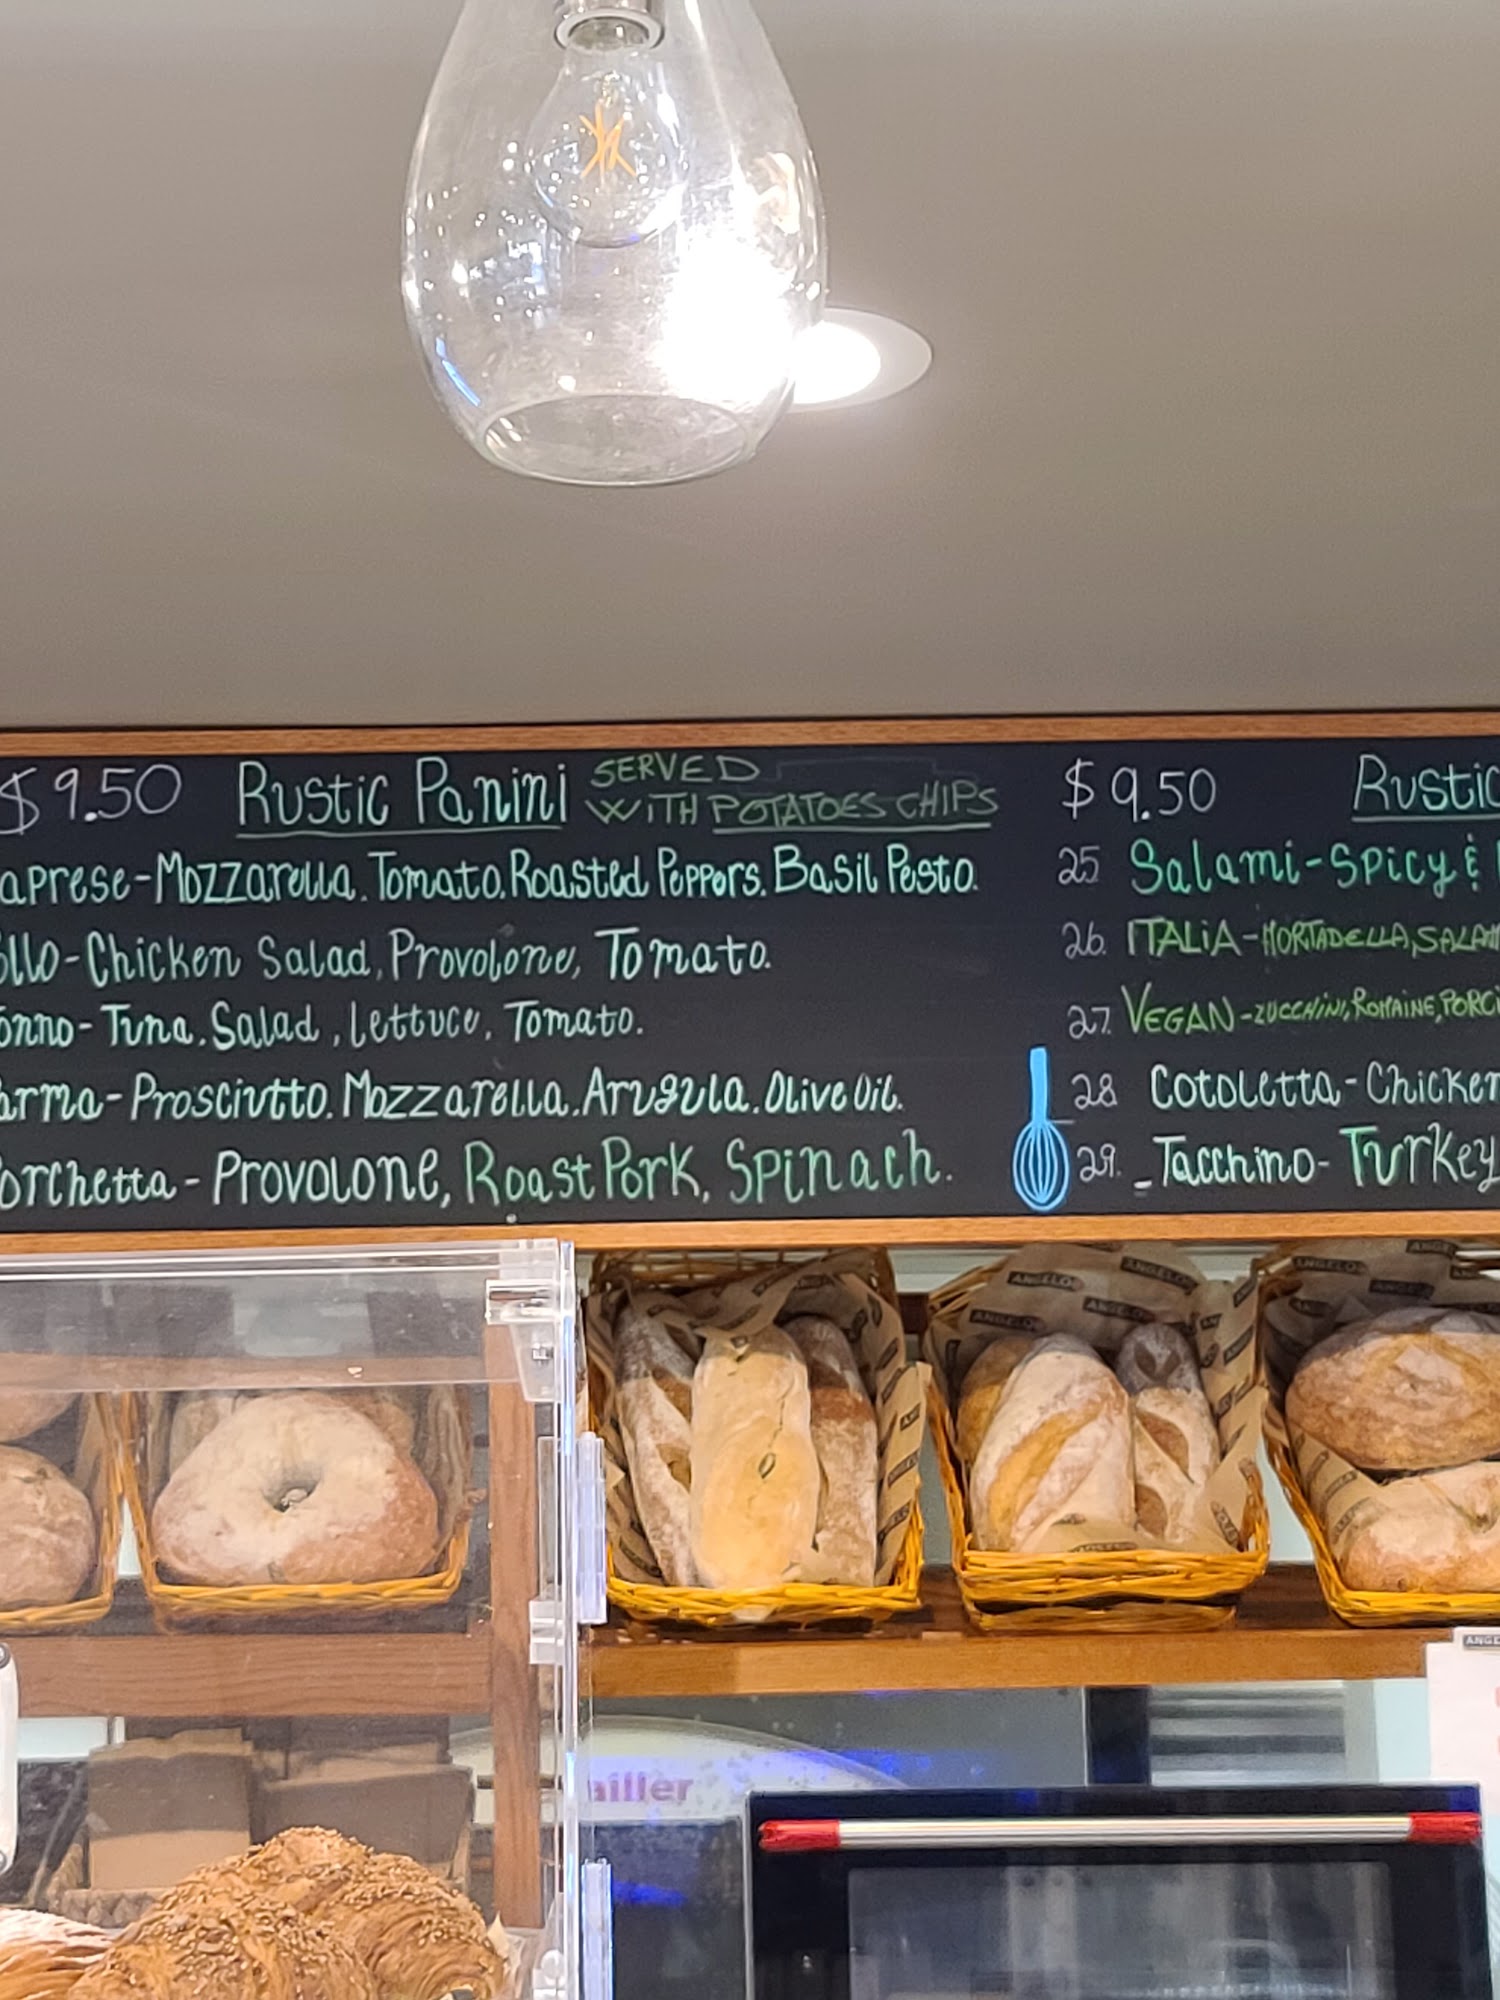 $9.50 Rustic Panini SERVED
WITH POTATOES CHIPS
aprese-Mozzarella. Tomato. Roasted Peppers. Basil Pesto.
ollo-Chicken Salad, Provolone, Tomato.
onno-Tuna. Salad, lettuce, Tomato.
arma-Prosciutto. Mozzarella. Arugula. Olive Oil.
orchetta-PROVOLONE, Roast Pork, Spinach.
$9.50 Rustic
25 Salami-Spicy &
26. ITALIA-MORTADELLA, SALAM
27. VEGAN-ZUCCHINI, ROMAINE, PORCI
28 Cotoletta-Chicken
29. Tacchino-Turkey
ANGELO
ANGELO
ANGELO
ANGELO
ANGELO
ailler
ANGE